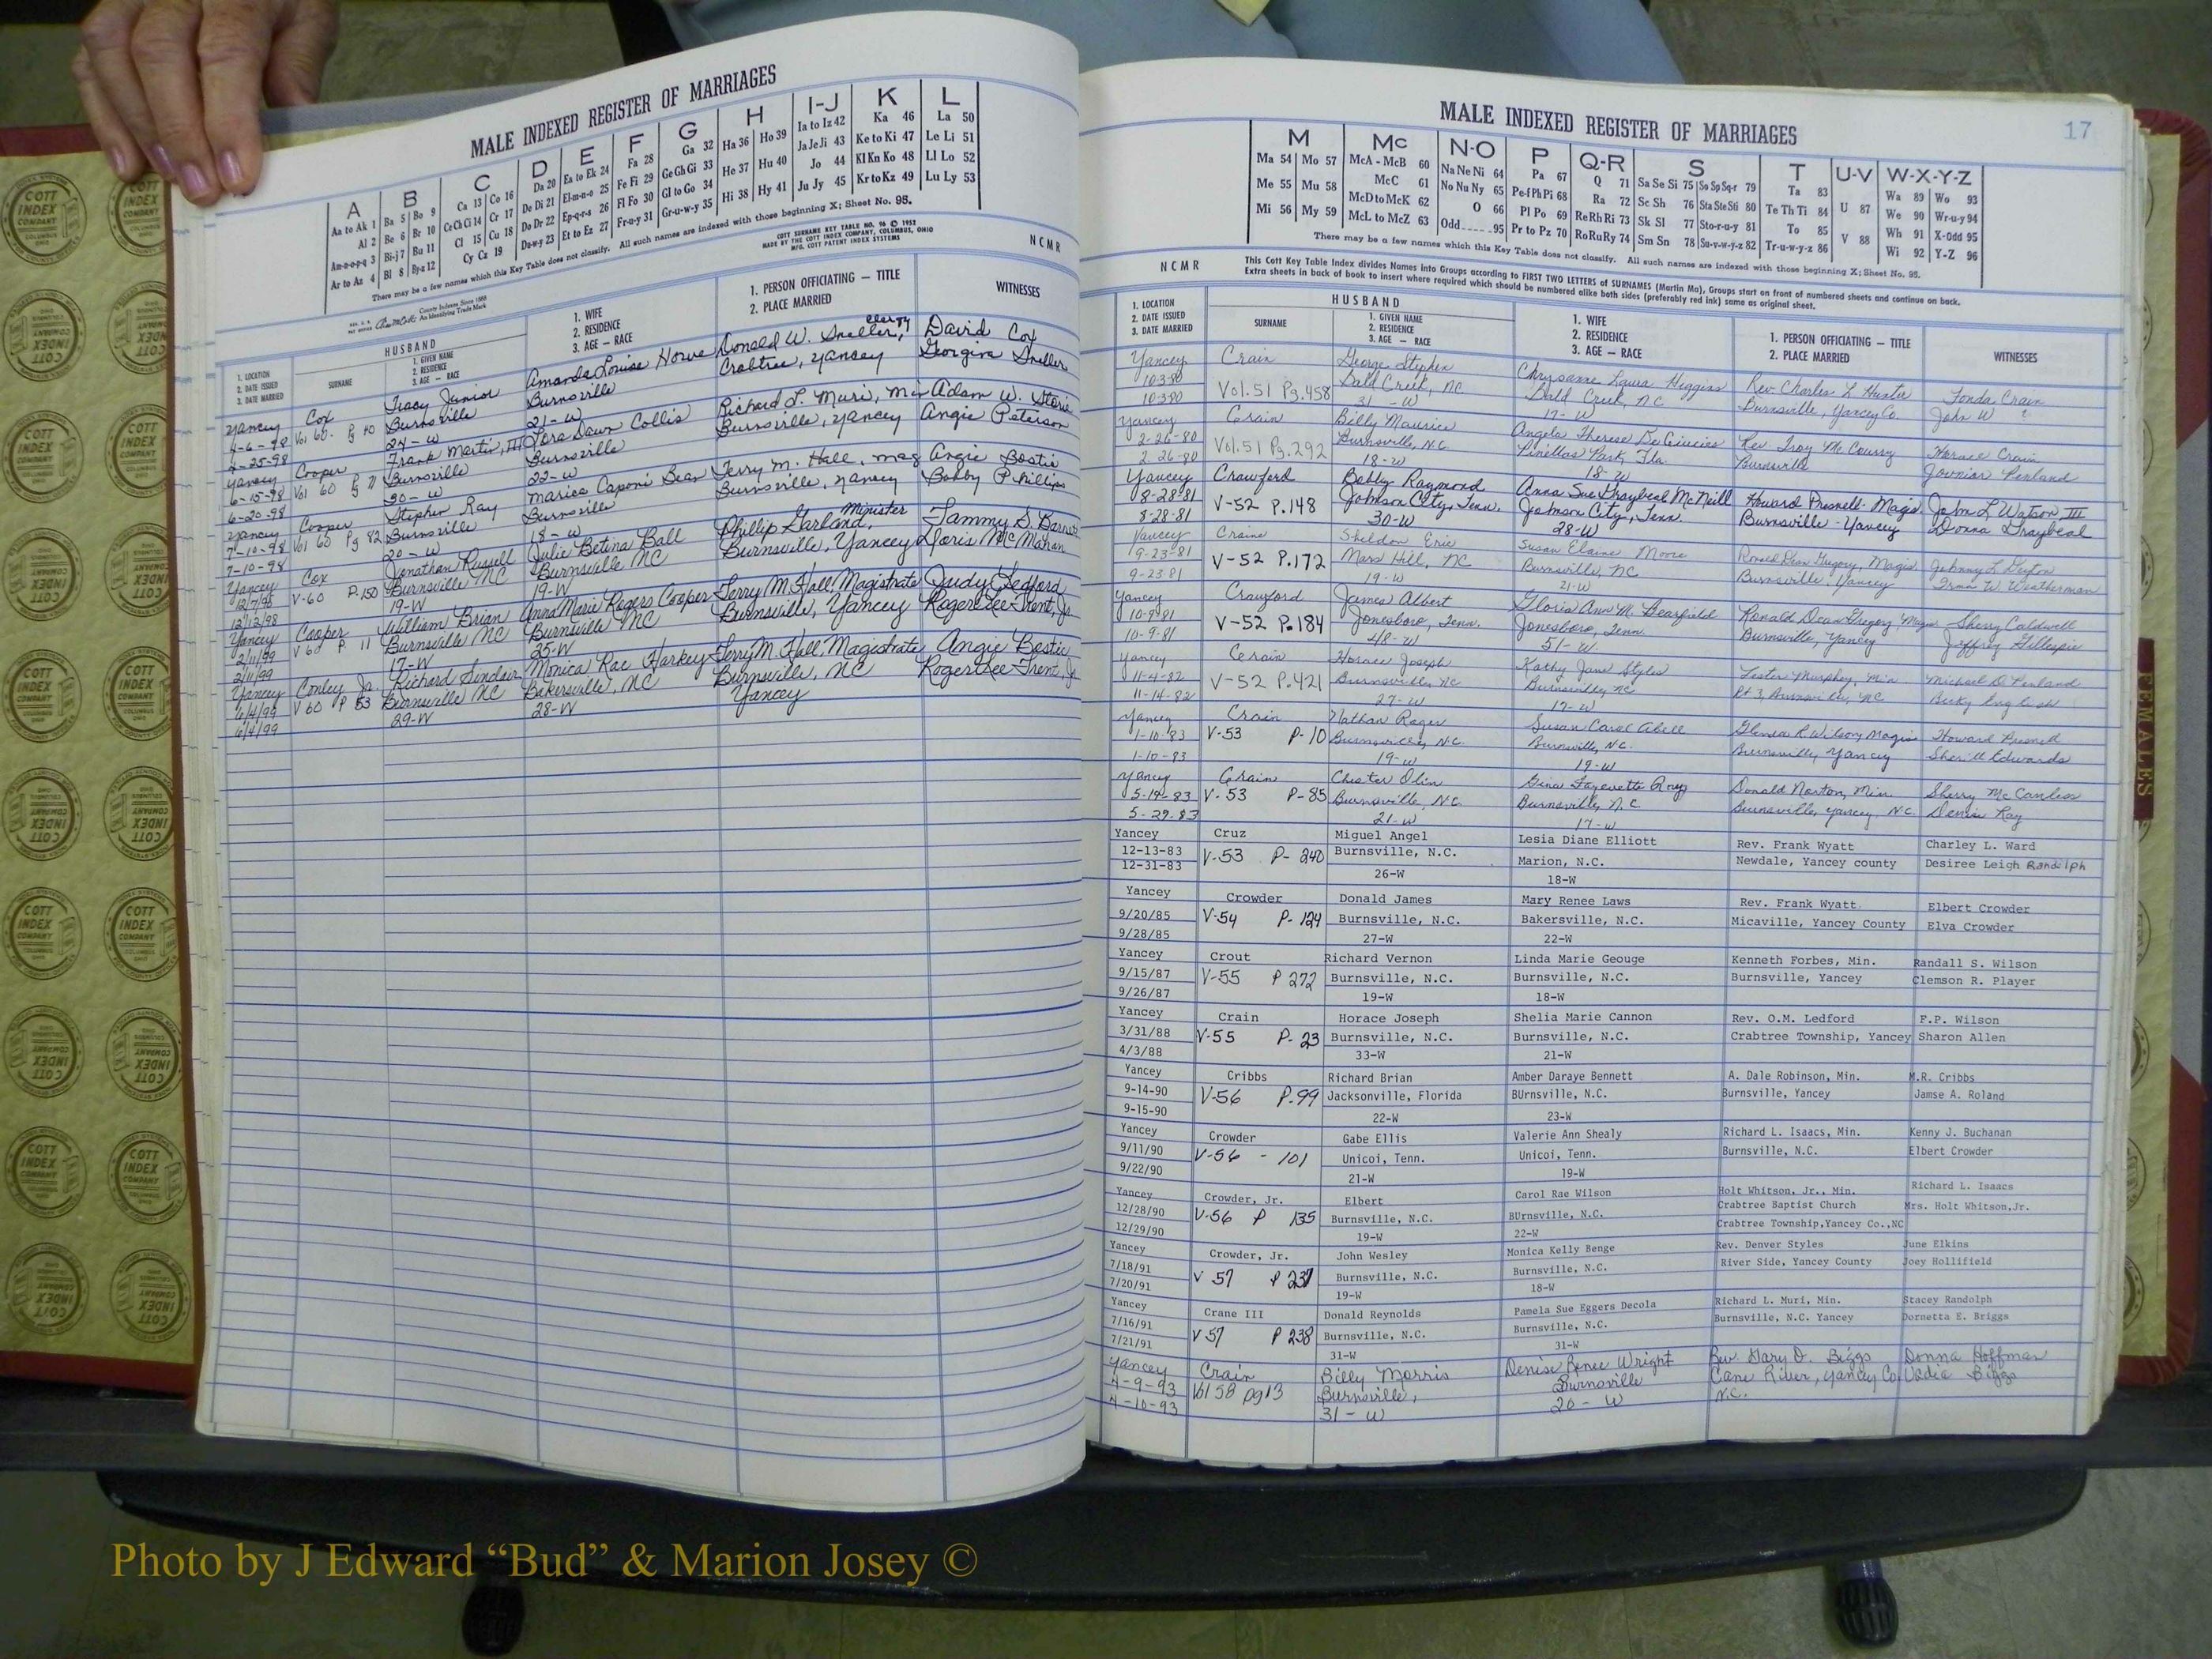 MALE INDEXED REGISTER OF MARRIAGES
A B C D E F G H I-J K L
Aa to Ak 1 Ba 5 Bo 9 Ca 13 Co 16 Da 20 Ea to Ek 24 Fa 28 Ga 32 Ha 36 Ho 39 Ia to Iz 42 Ka 46 La 50
Al 2 Be 6 Br 10 Ce Ch Ci 14 Cr 17 De Di 21 El-m-n-o 25 Fe Fi 29 Ge Gh Gi 33 He 37 Hu 40 Ja Je Ji 43 Ke to Ki 47 Le Li 51
Am-n-o-p-q 3 Bi-j 7 Bu 11 Cl 15 Cu 18 Do Dr 22 Ep-q-r-s 26 Fl Fo 30 Gl to Go 34 Hi 38 Hy 41 Jo 44 Kl Kn Ko 48 Ll Lo 52
Ar to Az 4 Bl 8 By-z 12 Cy Cz 19 Du-w-y 23 Et to Ez 27 Fr-u-y 31 Gr-u-w-y 35 Ju Jy 45 Kr to Kz 49 Lu Ly 53
There may be a few names which this Key Table does not classify. All such names are indexed with those beginning X; Sheet No. 95.
COTT SURNAME KEY TABLE NO. 96 © 1952
MADE BY THE COTT INDEX COMPANY, COLUMBUS, OHIO
MFG. COTT PATENT INDEX SYSTEMS
NCMR
County Indexes Since 1888
An Identifying Trade Mark
HUSBAND
1. LOCATION
2. DATE ISSUED
3. DATE MARRIED
SURNAME
1. GIVEN NAME
2. RESIDENCE
3. AGE — RACE
1. WIFE
2. RESIDENCE
3. AGE — RACE
1. PERSON OFFICIATING — TITLE
2. PLACE MARRIED
WITNESSES
Yancey Cox Tracy Junior Amanda Louise Howe Donald W. Sneller, Clergy David Cox
4-6-98 Vol 60 Pg 40 Burnsville Burnsville Crabtree, Yancey Georgina Sneller
4-25-98 24-W 21-W
Yancey Cooper Frank Martin, III Lora Dawn Collis Richard L. Muri, Min Adam W. Storie
6-15-98 Vol 60 Pg 71 Burnsville Burnsville Burnsville, Yancey Angie Peterson
6-20-98 30-W 22-W
Yancey Cooper Stephen Ray Marica Caponi Bean Terry M. Hall, mag Angie Bostic
7-10-98 Vol 60 Pg 82 Burnsville Burnsville Burnsville, Yancey Bobby Phillips
7-10-98 20-W 18-W
Yancey Cox Jonathan Russell Julie Betina Ball Phillip Garland, Minister Tammy S. Barnett
12/7/98 V-60 P.150 Burnsville NC Burnsville NC Burnsville, Yancey Doris McMahan
12/12/98 19-W 19-W
Yancey Cooper William Brian Anna Marie Rogers Cooper Terry M. Hall, Magistrate Judy Ledford
2/11/99 V 60 P. 11 Burnsville NC Burnsville NC Burnsville, Yancey Roger Dee Trent, Jr.
2/11/99 17-W 25-W
Yancey Conley Jr. Richard Sinclair Monica Rae Harkey Terry M. Hall, Magistrate Angie Bostic
6/4/99 V 60 P 53 Burnsville NC Bakersville, NC Burnsville, NC Roger Dee Trent, Jr
6/4/99 29-W 28-W Yancey
MALE INDEXED REGISTER OF MARRIAGES
17
M Mc N-O P Q-R S T U-V W-X-Y-Z
Ma 54 Mo 57 McA - McB 60 Na Ne Ni 64 Pa 67 Q 71 Sa Se Si 75 So Sp Sq-r 79 Ta 83 Wa 89 Wo 93
Me 55 Mu 58 McC 61 No Nu Ny 65 Pe-f Ph Pi 68 Ra 72 Sc Sh 76 Sta Ste Sti 80 Te Th Ti 84 U 87 We 90 Wr-u-y 94
Mi 56 My 59 McD to McK 62 O 66 Pl Po 69 Re Rh Ri 73 Sk Sl 77 Sto-r-u-y 81 To 85 V 88 Wh 91 X-Odd 95
McL to McZ 63 Odd 95 Pr to Pz 70 Ro Ru Ry 74 Sm Sn 78 Su-v-w-y-z 82 Tr-u-w-y-z 86 Wi 92 Y-Z 96
There may be a few names which this Key Table does not classify. All such names are indexed with those beginning X; Sheet No. 95.
NCMR
This Cott Key Table Index divides Names into Groups according to FIRST TWO LETTERS of SURNAMES (Martin Ma), Groups start on front of numbered sheets and continue on back.
Extra sheets in back of book to insert where required which should be numbered alike both sides (preferably red ink) same as original sheet.
HUSBAND
1. LOCATION
2. DATE ISSUED
3. DATE MARRIED
SURNAME
1. GIVEN NAME
2. RESIDENCE
3. AGE — RACE
1. WIFE
2. RESIDENCE
3. AGE — RACE
1. PERSON OFFICIATING — TITLE
2. PLACE MARRIED
WITNESSES
Yancey Crain George Stephen Chrysanne Laura Higgins Rev. Charles L Hunter Fonda Crain
10-3-80 Vol.51 Pg.458 Bald Creek, NC Bald Creek, NC Burnsville, Yancey Co. John W
10-3-80 31-W 17-W
Yancey Crain Billy Maurice Angela Therese Rev. Troy McCourry Horace Crain
2-26-80 Vol.51 Pg.292 Burnsville, N.C. Pinellas Park, Fla. Burnsville Penland
2-26-80 18-W 18-W
Yancey Crawford Bobby Raymond Anna Sue Graybeal McNeill Howard Presnell-Magis. John L Watson III
8-28-81 V-52 P.148 Johnson City, Tenn. Johnson City, Tenn. Burnsville-Yancey Donna Graybeal
8-28-81 30-W 28-W
Yancey Craine Sheldon Eric Susan Elaine Moore Ronald Dean Gregory, Magis Johnny L Deyton
9-23-81 V-52 P.172 Mars Hill, NC Burnsville, NC Burnsville, Yancey W. Weatherman
9-23-81 19-W 21-W
Yancey Crawford James Albert Gloria Ann M. Dearfield Ronald Dean Gregory, Magis Sherry Caldwell
10-9-81 V-52 P.184 Jonesboro, Tenn. Jonesboro, Tenn. Burnsville, Yancey Jeffrey Gillespie
10-9-81 48-W 51-W
Yancey Crain Horace Joseph Kathy Jane Styles Lester Murphy, Min Michael D. Penland
11-4-82 V-52 P.421 Burnsville, NC Burnsville, NC Rt 3, Burnsville, NC Becky English
11-14-82 27-W 17-W
Yancey Crain Nathan Roger Susan Carol Abell Glenda R Wilson, Magis Howard Presnell
1-10-83 V-53 P-10 Burnsville, N.C. Burnsville, N.C. Burnsville, Yancey Sherill Edwards
1-10-83 19-W 19-W
Yancey Crain Chester Olin Gina Fayerette Ray Donald Norton, Min Sherry McCanless
5-19-83 V-53 P-85 Burnsville, N.C. Burnsville, N.C. Burnsville, Yancey, N.C. Denise Ray
5-29-83 21-W 17-W
Yancey Cruz Miguel Angel Lesia Diane Elliott Rev. Frank Wyatt Charley L. Ward
12-13-83 V-53 P-240 Burnsville, N.C. Marion, N.C. Newdale, Yancey county Desiree Leigh Randolph
12-31-83 26-W 18-W
Yancey Crowder Donald James Mary Renee Laws Rev. Frank Wyatt Elbert Crowder
9/20/85 V-54 P-124 Burnsville, N.C. Bakersville, N.C. Micaville, Yancey County Elva Crowder
9/28/85 27-W 22-W
Yancey Crout Richard Vernon Linda Marie Geouge Kenneth Forbes, Min. Randall S. Wilson
9/15/87 V-55 P 272 Burnsville, N.C. Burnsville, N.C. Burnsville, Yancey Clemson R. Player
9/26/87 19-W 18-W
Yancey Crain Horace Joseph Shelia Marie Cannon Rev. O.M. Ledford F.P. Wilson
3/31/88 V-55 P-23 Burnsville, N.C. Burnsville, N.C. Crabtree Township, Yancey Sharon Allen
4/3/88 33-W 21-W
Yancey Cribbs Richard Brian Amber Daraye Bennett A. Dale Robinson, Min. M.R. Cribbs
9-14-90 V-56 P.99 Jacksonville, Florida BUrnsville, N.C. Burnsville, Yancey Jamse A. Roland
9-15-90 22-W 23-W
Yancey Crowder Gabe Ellis Valerie Ann Shealy Richard L. Isaacs, Min. Kenny J. Buchanan
9/11/90 V-56 - 101 Unicoi, Tenn. Unicoi, Tenn. Burnsville, N.C. Elbert Crowder
9/22/90 21-W 19-W
Yancey Crowder, Jr. Elbert Carol Rae Wilson Holt Whitson, Jr., Min. Richard L. Isaacs
12/28/90 V-56 P 135 Burnsville, N.C. BUrnsville, N.C. Crabtree Baptist Church Mrs. Holt Whitson,Jr.
12/29/90 19-W 22-W Crabtree Township,Yancey Co.,NC
Yancey Crowder, Jr. John Wesley Monica Kelly Benge Rev. Denver Styles June Elkins
7/18/91 V 57 P 237 Burnsville, N.C. Burnsville, N.C. River Side, Yancey County Joey Hollifield
7/20/91 19-W 18-W
Yancey Crane III Donald Reynolds Pamela Sue Eggers Decola Richard L. Muri, Min. Stacey Randolph
7/16/91 V 57 P 238 Burnsville, N.C. Burnsville, N.C. Burnsville, N.C. Yancey Dornetta E. Briggs
7/21/91 31-W 31-W
Yancey Crain Billy Morris Denise Renee Wright Rev. Gary D. Biggs Donna Hoffman
4-9-93 Vol 58 pg13 Burnsville, Burnsville Cane River, Yancey Co. Vadie Biggs
4-10-93 31-W 20-W N.C.
FEMALES
COTT INDEX COMPANY
Photo by J Edward “Bud” & Marion Josey ©